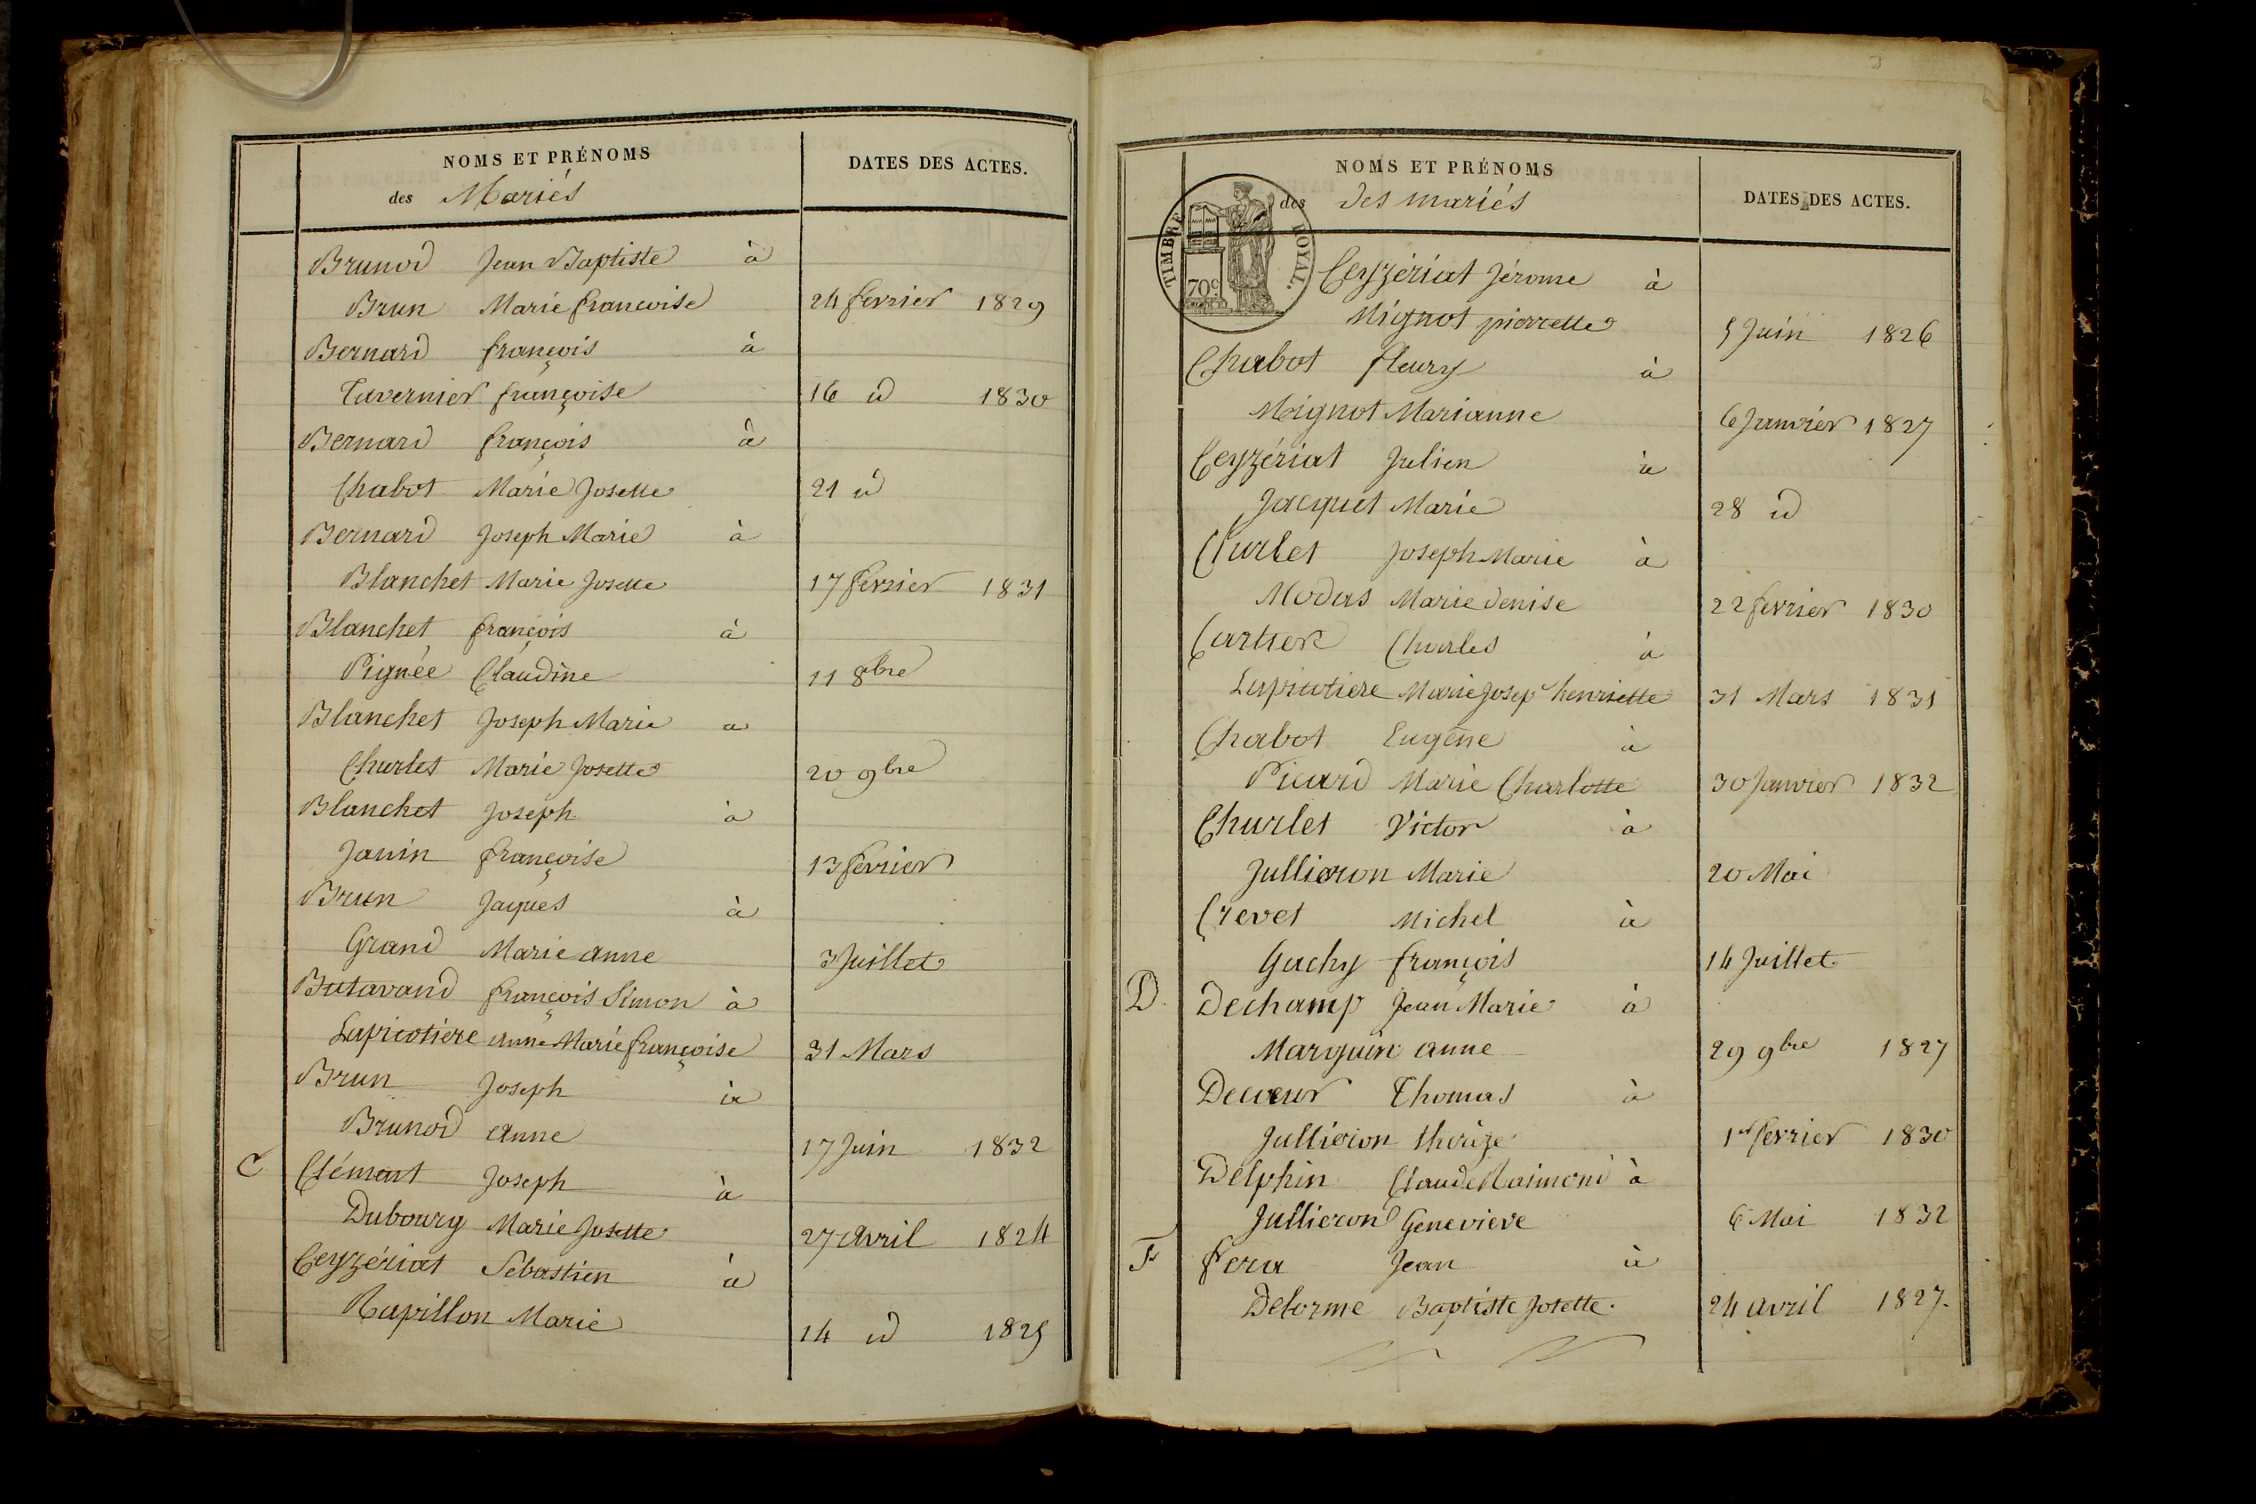 NOMS ET PRÉNOMS DATES DES ACTES.
des Mariés
Brunod Jean Baptiste à
Brun Marie francoise 24 fevrier 1829
Bernard françois à
Tavernier françoise 16 id 1830
Bernard françois à
Chabot Marie Josette 21 id
Bernard Joseph Marie à
Blanchet Marie Josette 17 fevrier 1831
Blanchet françois à
Pignée Claudine 11 8bre
Blanchet Joseph Marie a
Churlet Marie Josette 20 9bre
Blanchet Joseph à
Janin françoise 13 fevrier
Brun Jaques à
Grand Marie anne 3 Juillet
Butavand françois Simon à
Lapicotiere anne Marie françoise 31 Mars
Brun Joseph à
Brunod anne 17 Juin 1832
C Clément Joseph à
Dubourg Marie Josette 27 avril 1824
Ceyzériat Sébastien à
Rapillon Marie 14 id 1825
NOMS ET PRÉNOMS
des des mariés DATES DES ACTES.
TIMBRE ROYAL.
70c
Ceyzériat Jérome à
Mignot pierrette 5 Juin 1826
Chabot fleury à
Mignot Marianne 6 Janvier 1827
Ceyzériat Julien à
Jacquet Marie 28 id
Churlet Joseph Marie à
Modas Marie denise 22 fevrier 1830
Cartier Charles à
Lapicotiere Marie Josep henriette 31 Mars 1831
Chabot Eugêne à
Picard Marie Charlotte 30 Janvier 1832
Churlet Victor à
Jullieron Marie 20 Mai
Crevet Michel à
Gachy françois 14 Juillet
D. Dechamp Jean Marie à
Marguin anne 29 9bre 1827
Decoeur Thomas à
Jullieron thérèze 1er fevrier 1830
Delphin Claude Raimond à
Jullieron Genevieve 6 Mai 1832
F fera Jean à
Delorme Baptiste Josette. 24 avril 1827.